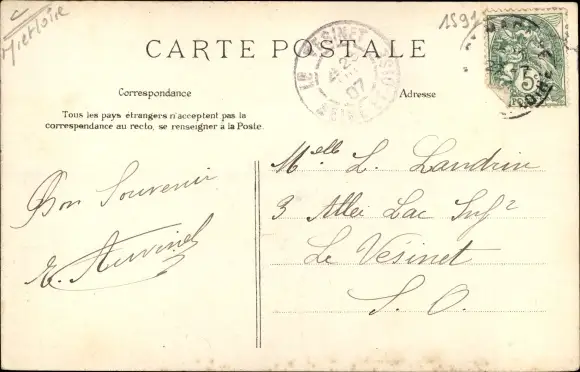 1591
CARTE POSTALE
LE VESINET
07
5
Correspondance
Adresse
Tous les pays étrangers n'acceptent pas la
correspondance au recto, se renseigner à la Poste.
Bon Souvenir
Melle L. Landrin
3 Allée Lac Infr
Le Vésinet
S. O.